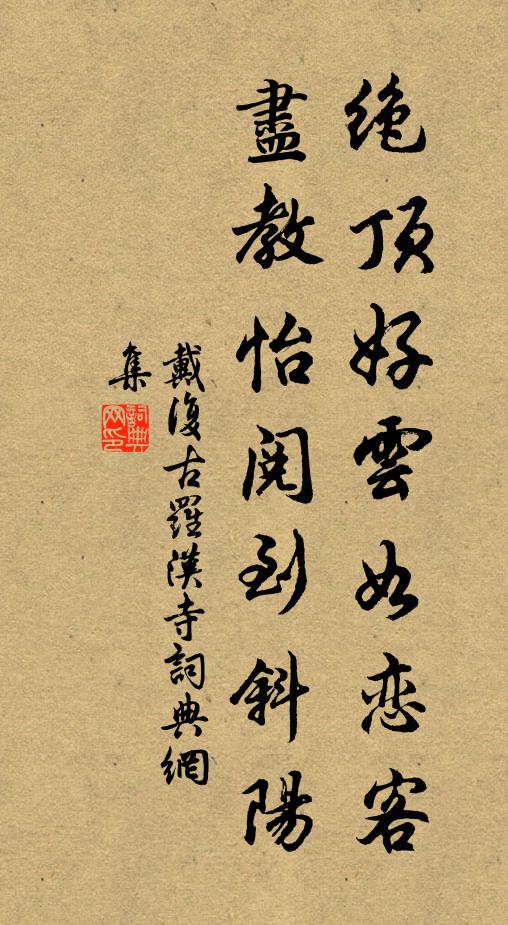 絶頂好雲如恋客
盡教怡閱到斜陽
戴復古羅漢寺詞典網
集
詞典
网印